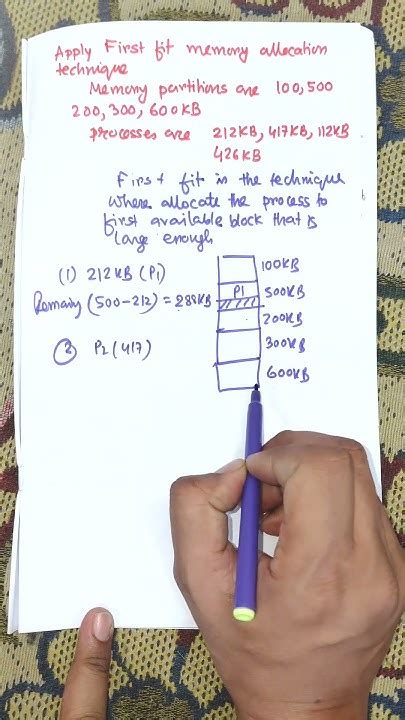 Apply First fit memory allocation
technique
Memory partitions are 100, 500
200, 300, 600KB
processes are 212KB, 417KB, 112KB
426KB
First fit is the technique
where allocate the process to
first available block that is
large enough
(1) 212KB (P1)
100KB
P1 500KB
Remaing (500-212) = 288KB
200KB
300KB
② P2 (417)
600KB